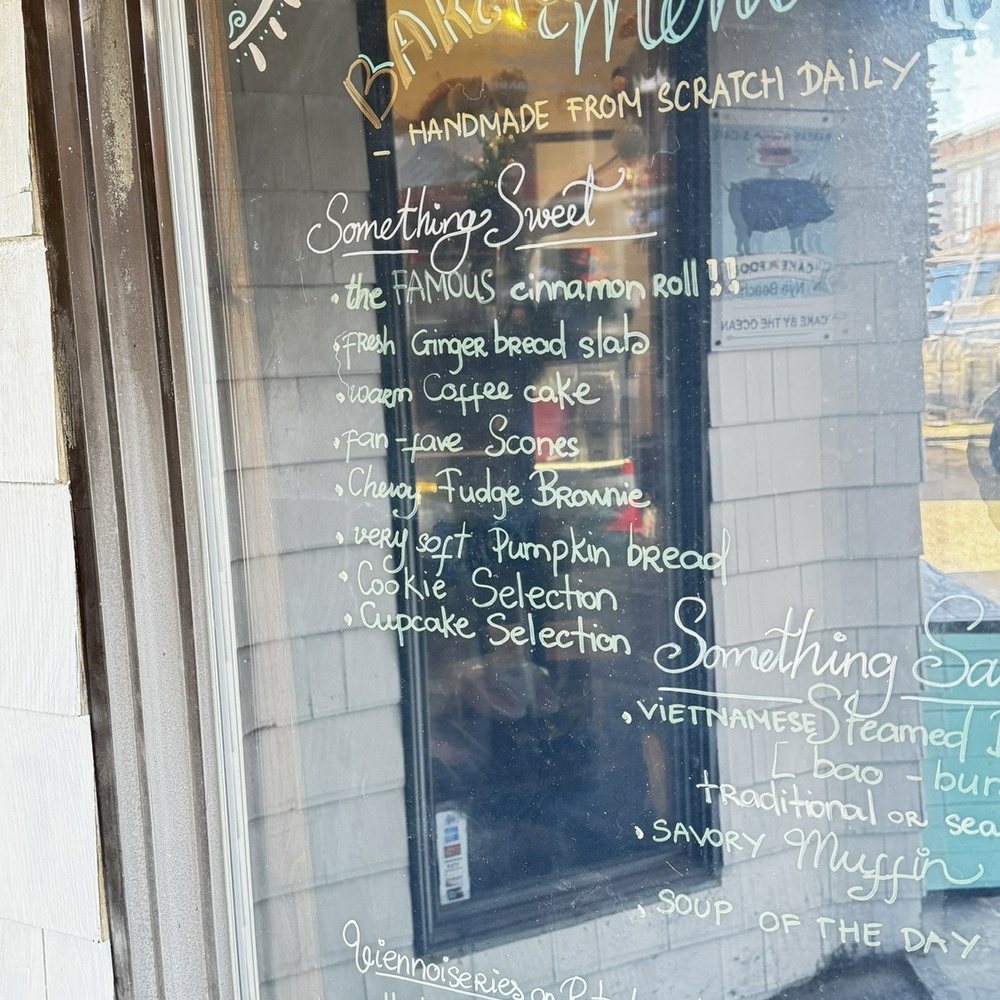 BAKERY Menu
- HANDMADE FROM SCRATCH DAILY
Something Sweet
• the FAMOUS cinnamon Roll !!
• Fresh Ginger bread slab
• warm Coffee cake
• Fan-fave Scones
• Chewy Fudge Brownie
• very soft Pumpkin bread
• Cookie Selection
• Cupcake Selection
Something Sa
• VIETNAMESE Steamed
[ bao - bun
traditional OR sea
• SAVORY Muffin
• SOUP OF THE DAY
Viennoiseries on
CAKE & FOO
Nye Beach
CAKE BY THE OCEAN